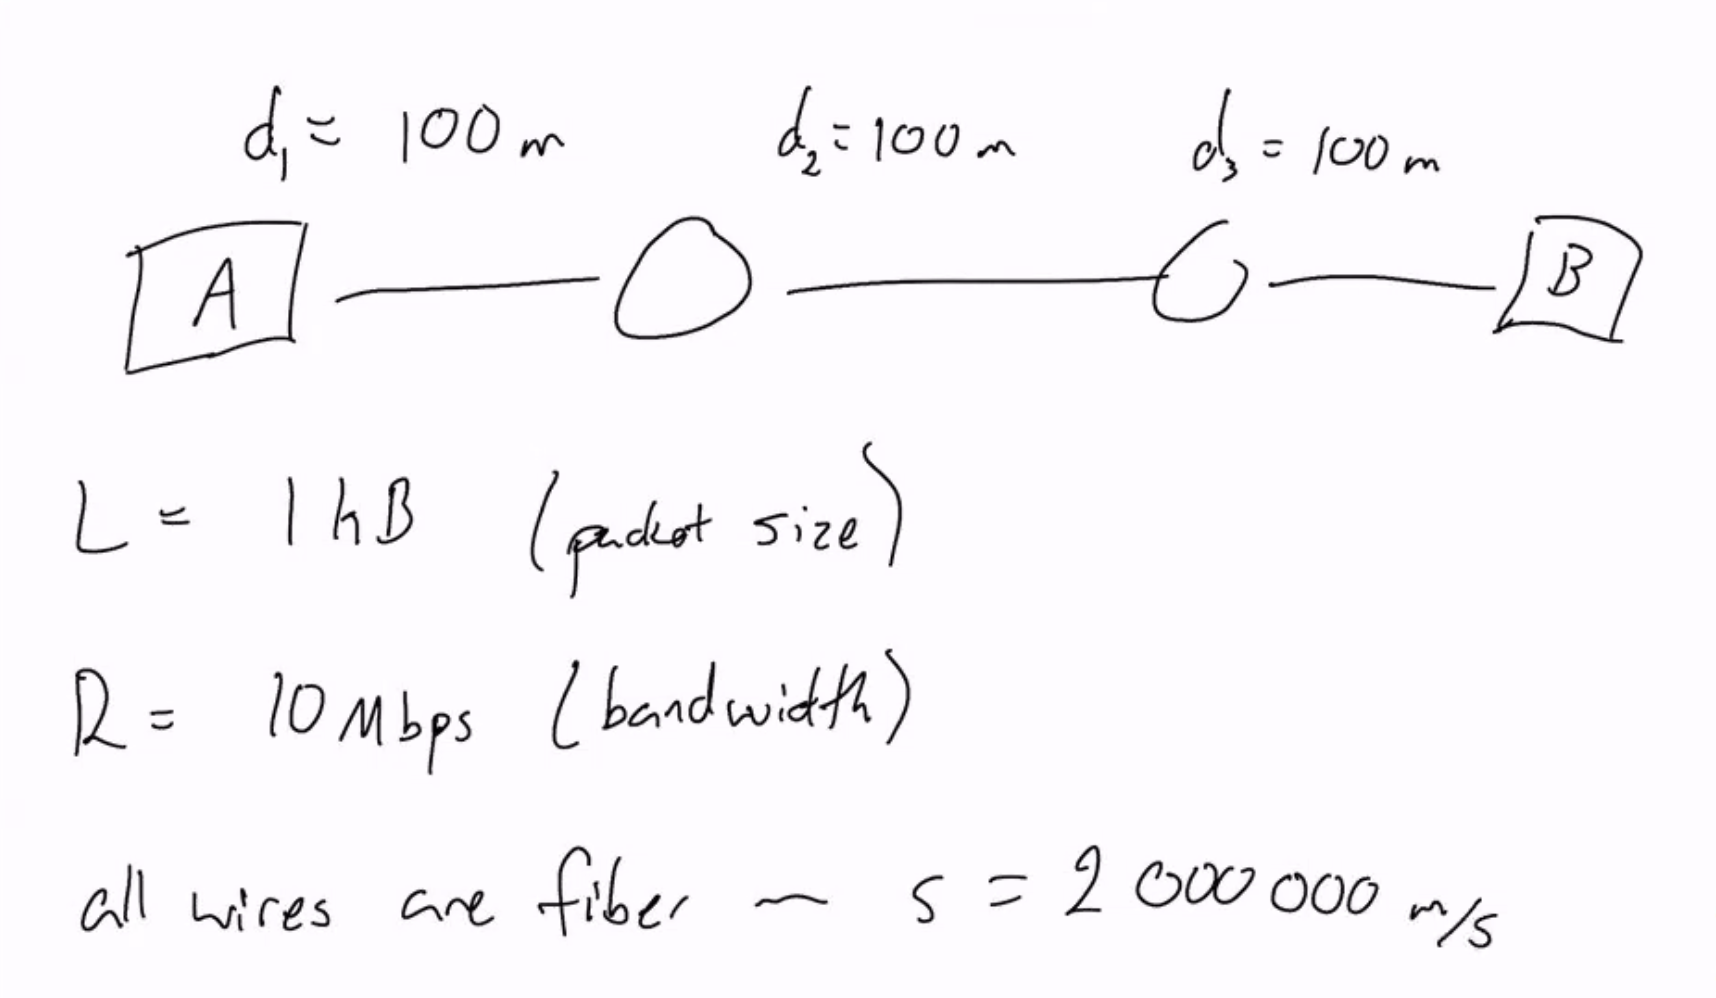 d₁ = 100 m d₂ = 100 m d₃ = 100 m
A B
L = 1 kB (packet size)
R = 10 Mbps (bandwidth)
all wires are fiber — s = 2 000 000 m/s